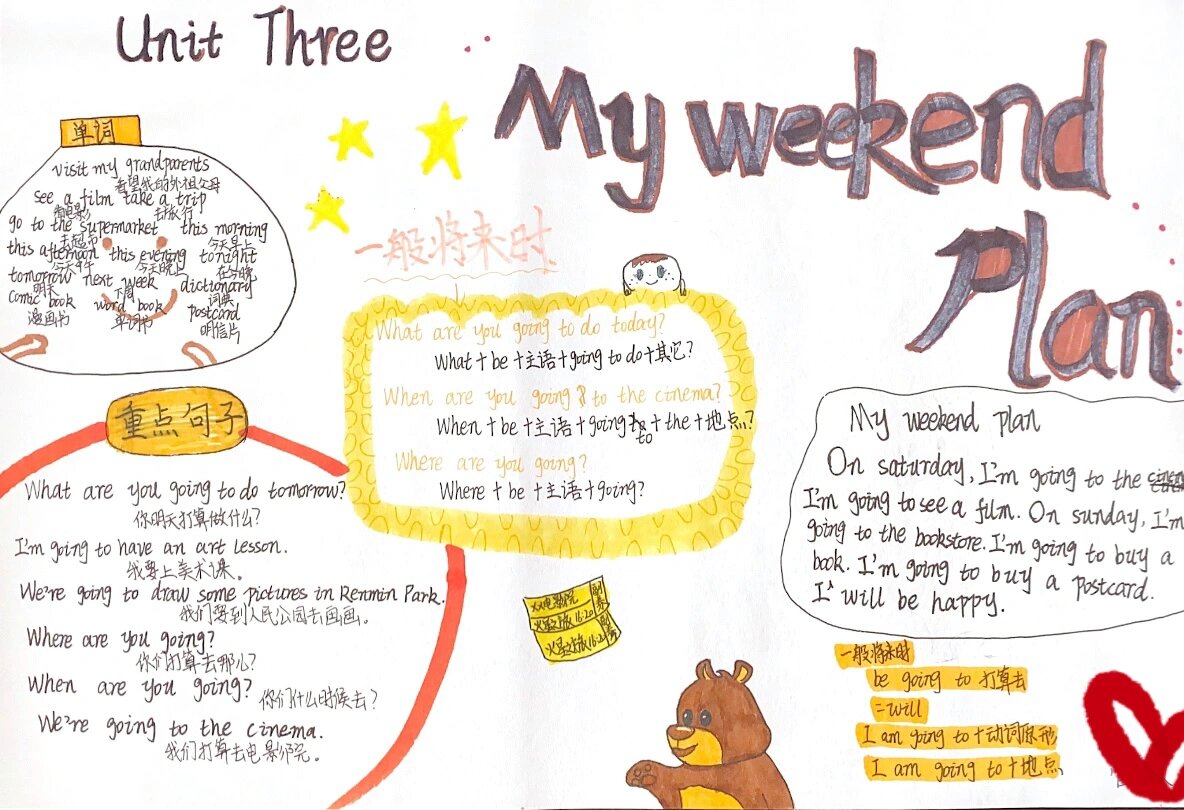 Unit Three
My weekend
Plan
单词
visit my grandparents
看望我的外祖父母
see a film take a trip
看电影 去旅行
go to the supermarket this morning
去超市 今天早上
this afternoon this evening tonight
今天下午 今天晚上 在今晚
tomorrow next week dictionary
明天 下周 词典
Comic book word book postcard
漫画书 单词书 明信片
一般将来时
What are you going to do today?
What+be+主语+going to do+其它?
When are you going to the cinema?
When+be+主语+going to+the+地点?
Where are you going?
Where+be+主语+going?
重点句子
What are you going to do tomorrow?
你明天打算做什么?
I'm going to have an art lesson.
我要上美术课。
We're going to draw some pictures in Renmin Park.
我们要到人民公园去画画。
Where are you going?
你们打算去哪儿?
When are you going?
你们什么时候去?
We're going to the cinema.
我们打算去电影院。
My weekend plan
On saturday, I'm going to the
I'm going to see a film. On sunday, I'm
going to the bookstore. I'm going to buy a
book. I'm going to buy a postcard.
I' will be happy.
电影院
16:20
一般将来时
be going to 打算去
=will
I am going to+动词原形
I am going to+地点